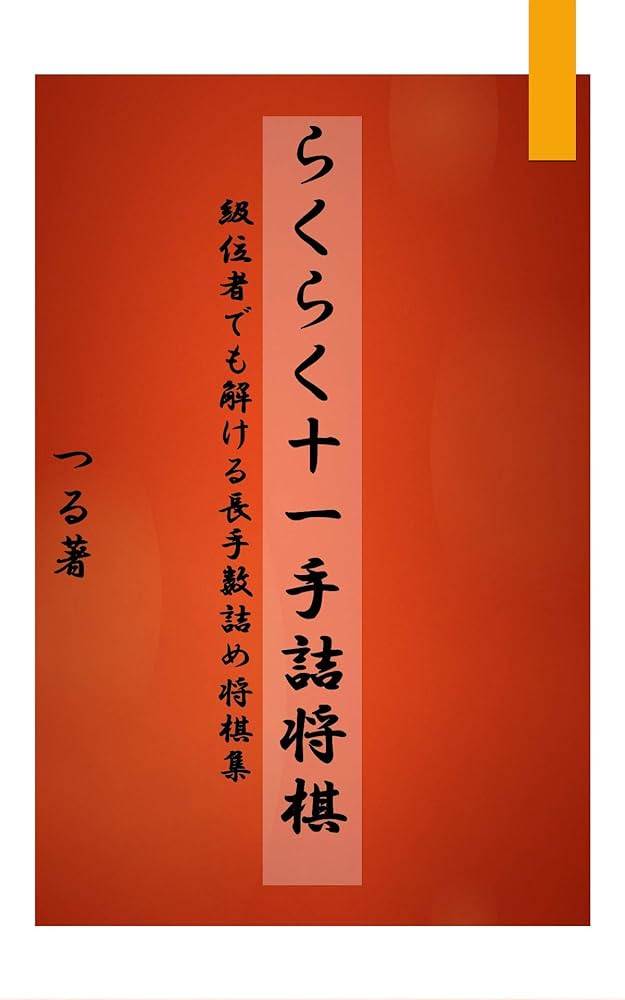 らくらく十一手詰将棋
級位者でも解ける長手数詰め将棋集
つる著